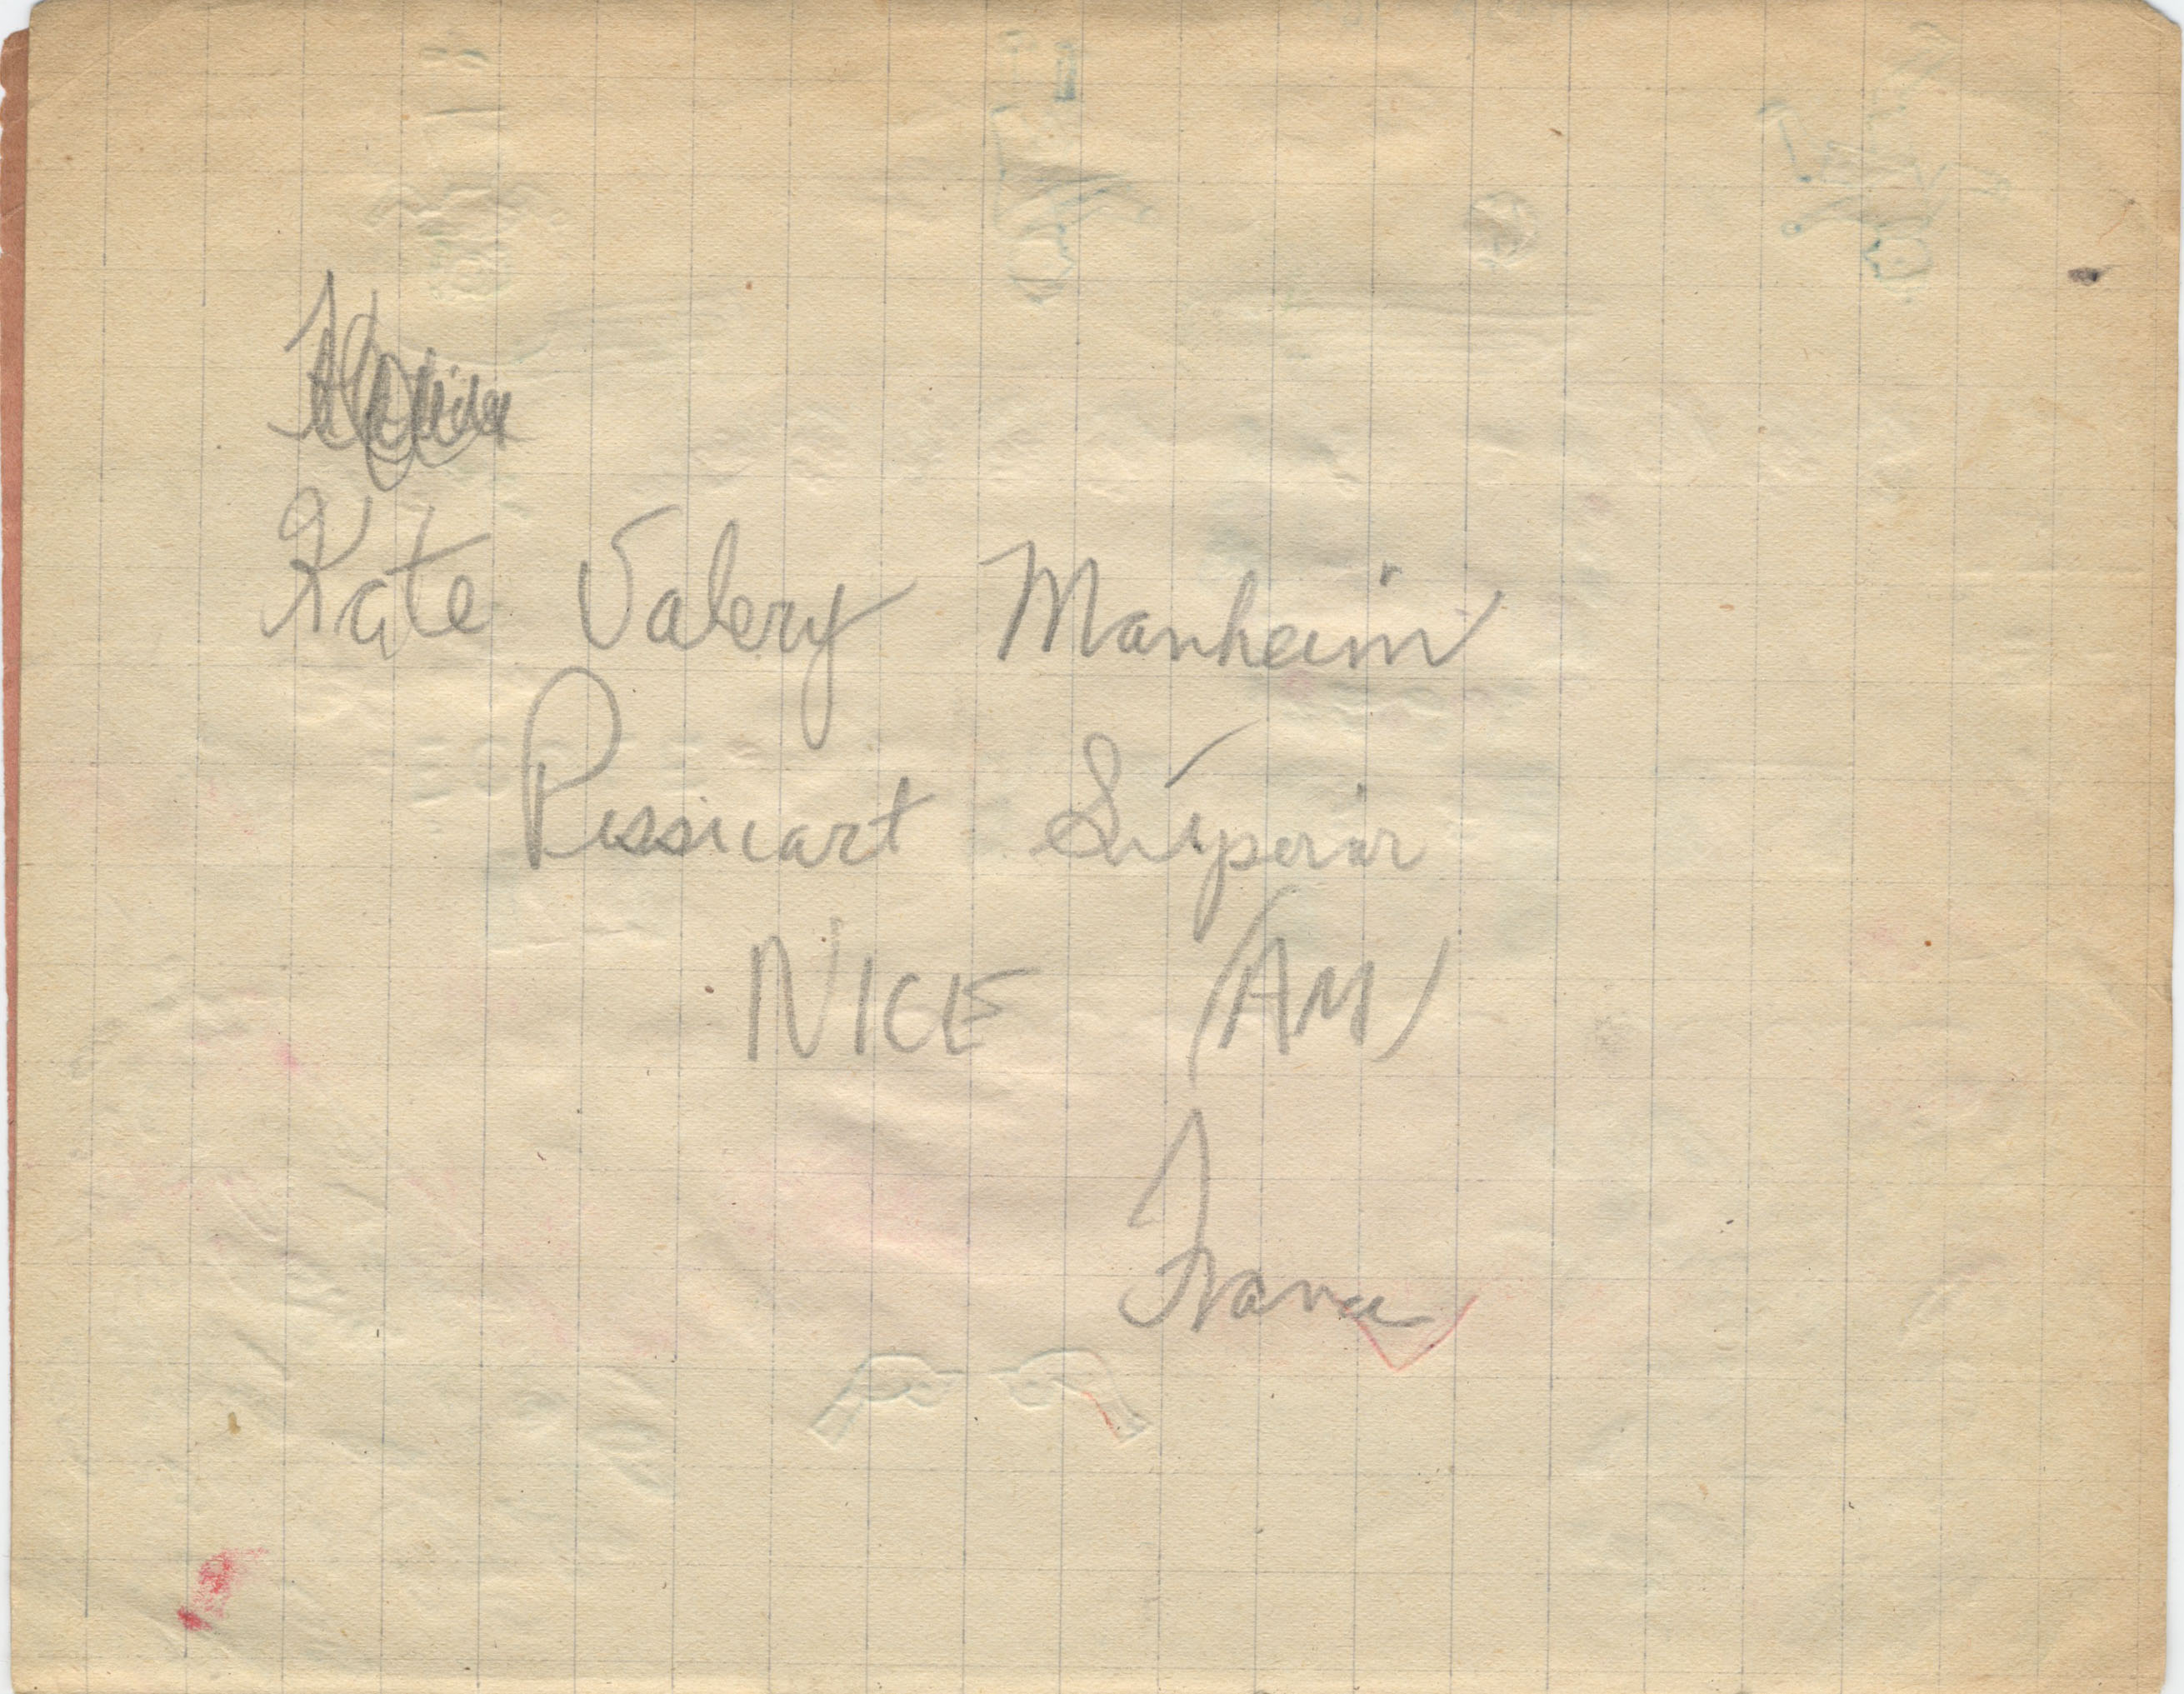 Kate Valery Manheim
Pessicart Superior
NICE (AM)
France